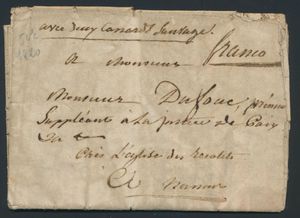 avec deux Canards Sauvages.
franco
A Monsieur
Monsieur Dufour, premier
Suppléant à La justice de Paix
Près L'église des Recolets
A Namur